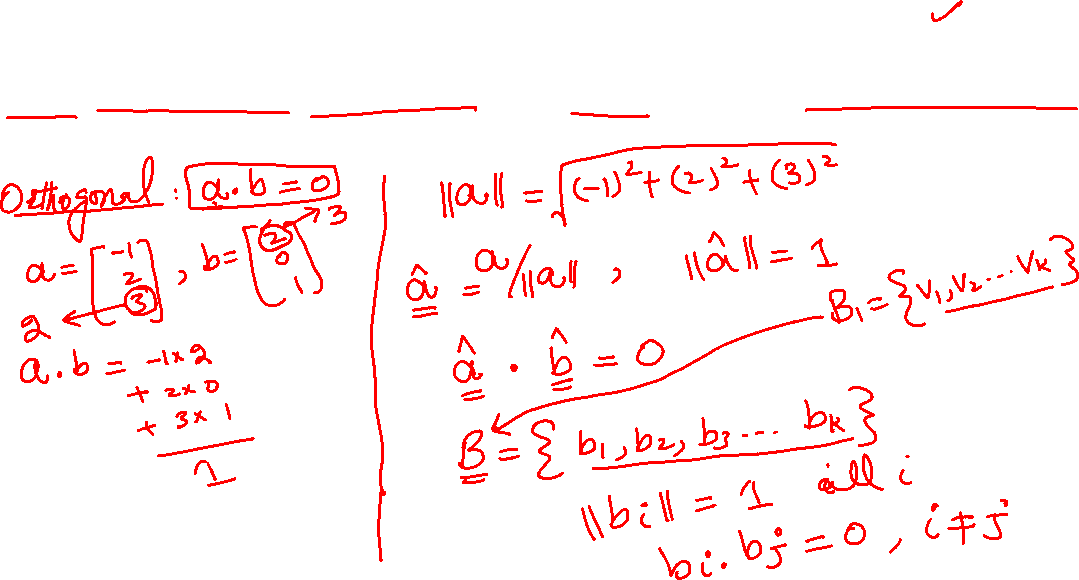 Orthogonal : a · b = 0
a = [-1 2 3], b = [2 0 1]
3
2
a · b = -1 × 2
+ 2 × 0
+ 3 × 1
1
||a|| = √((-1)² + (2)² + (3)²)
â = a/||a|| , ||â|| = 1
B₁ = {v₁, v₂ ... vₖ}
â · b̂ = 0
B = { b₁, b₂, b₃ ... bₖ }
||bᵢ|| = 1 all i
bᵢ · bⱼ = 0 , i ≠ j